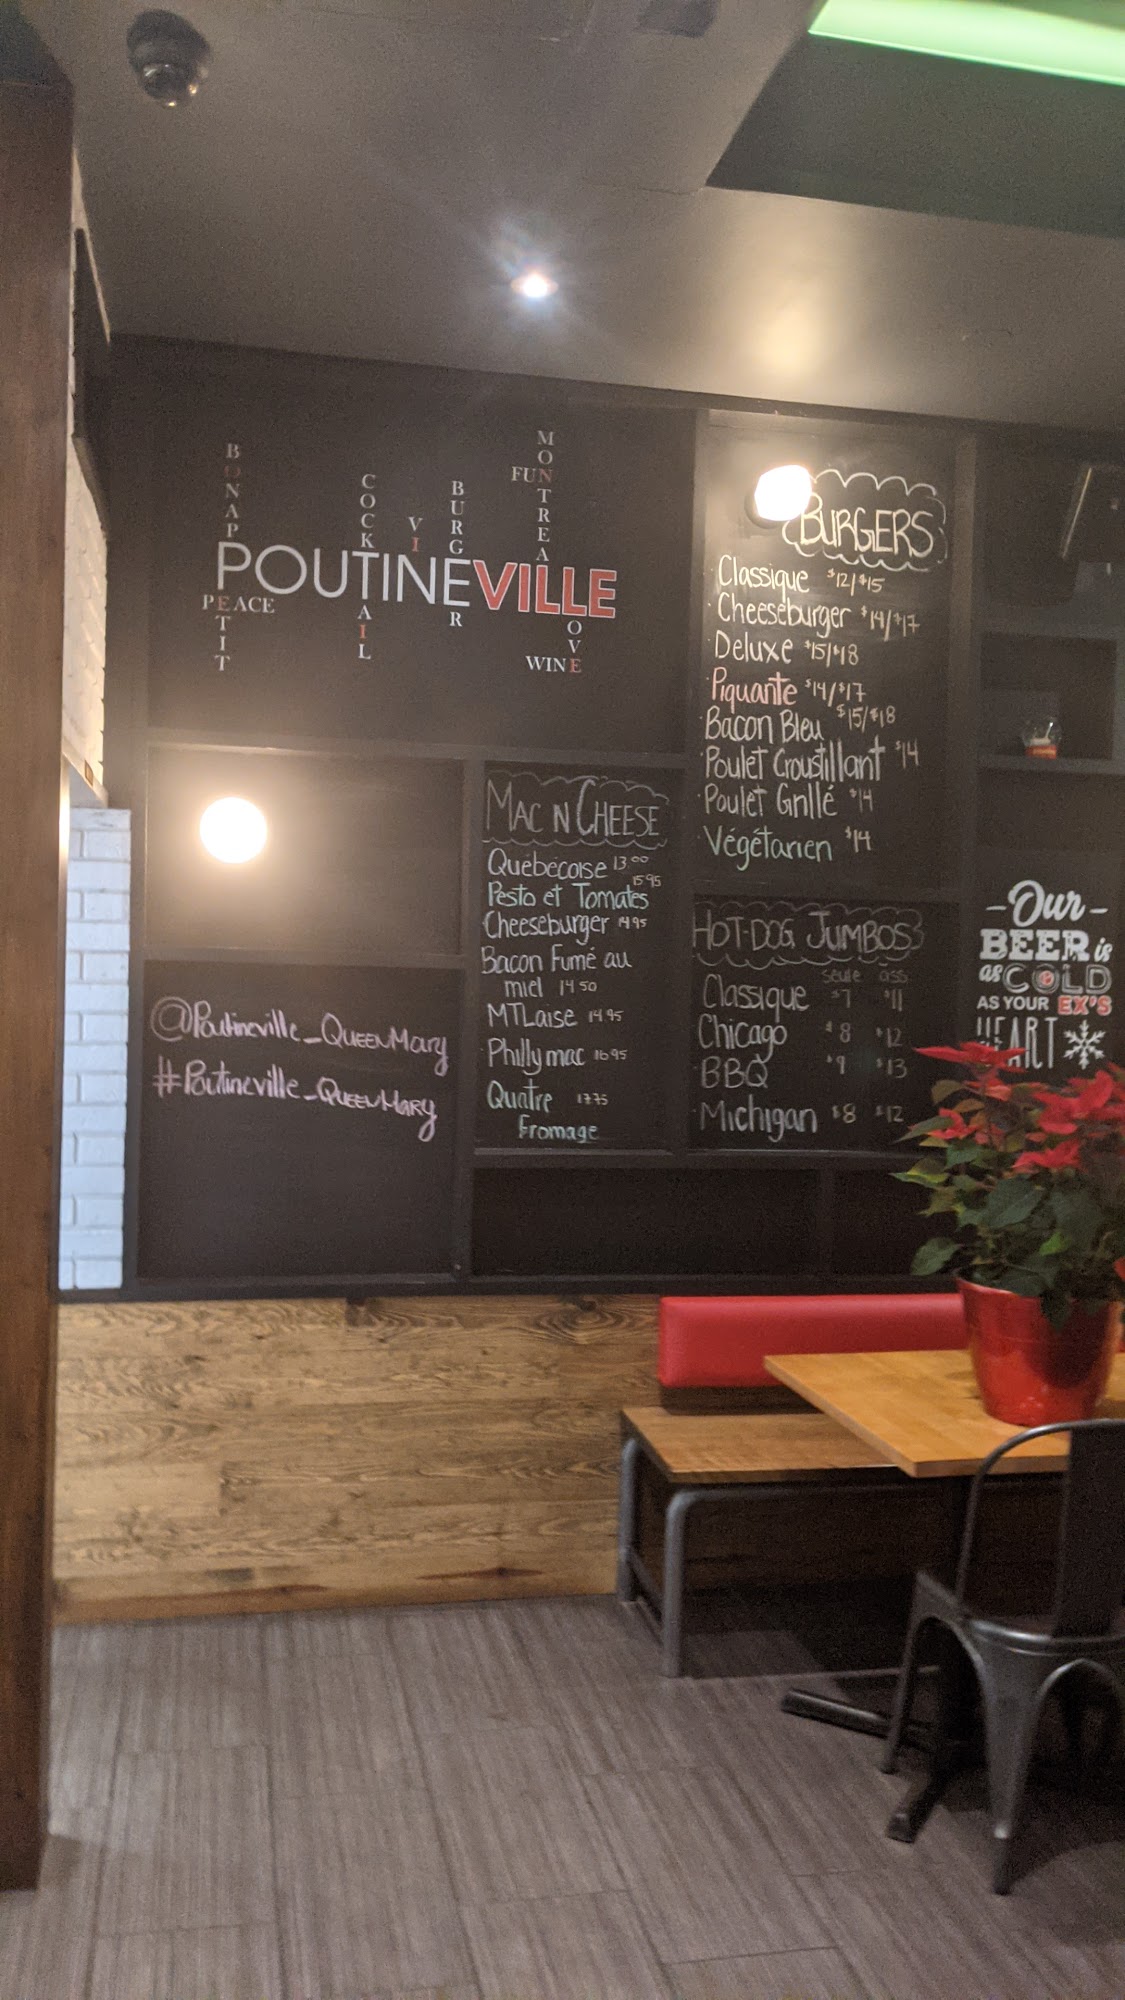 BONAPPETIT
PEACE
COCKTAIL
VI
BURGER
FUN
MONTREAL
LOVE
WINE
POUTINEVILLE
@Poutineville_QueenMary
#Poutineville_QueenMary
MAC N CHEESE
Québécoise 13.00
Pesto et Tomates 15 95
Cheeseburger 14 95
Bacon Fumé au
miel 14 50
MTLaise 14 95
Philly mac 16 95
Quatre 17 75
fromage
BURGERS
Classique $12/$15
Cheeseburger $14/$17
Deluxe $15/$18
Piquante $14/$17
Bacon Bleu $15/$18
Poulet Croustillant $14
Poulet Grillé $14
Végétarien $14
HOT-DOG JUMBOS
seule ass
Classique $7 $11
Chicago $8 $12
BBQ $9 $13
Michigan $8 $12
-Our-
BEER is
as COLD
AS YOUR EX'S
HEART